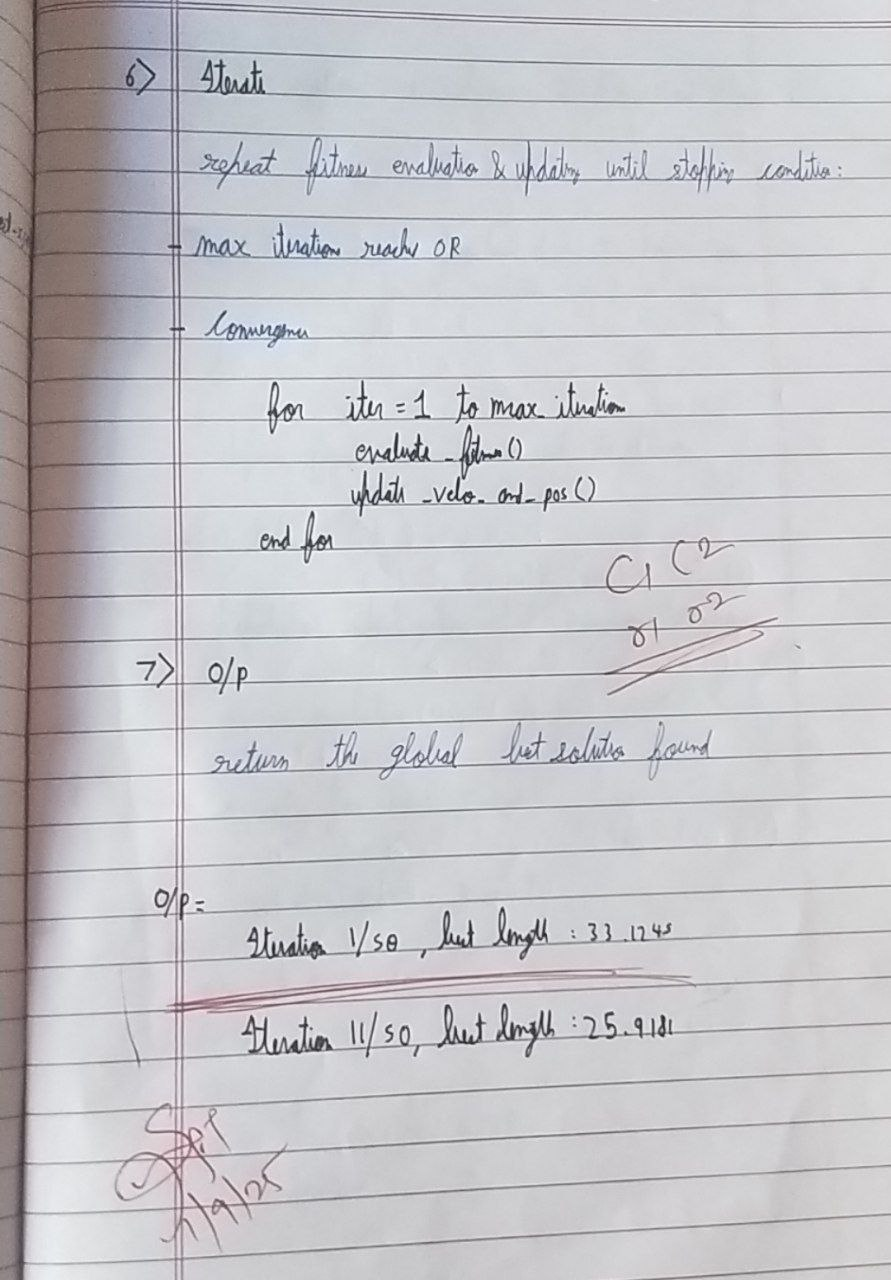 6> Iterate
repeat fitness evaluation & updating until stopping condition:
- max iteration reachs OR
- Convergence
for iter = 1 to max_iteration
evaluate_fitness()
update_velo_and_pos()
end for
C1 C2
r1 r2
7> O/P
return the global best solution found
O/P =
Iteration 1/50, best length : 33.1245
Iteration 11/50, best length : 25.9181
/9/25